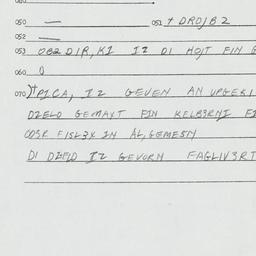 050 — 051 † DROJB2
052 —
053 OB2 DIR, KI IZ DI HOJT FIN
060 0
070 PICA, IZ GEVEN AN UPGEKI
DZELO GEMAXT FIN KELBERNE
ODER FISL3X IN AL,GEMESN
DI DZELO IZ GEVORN FAGLIV3RT